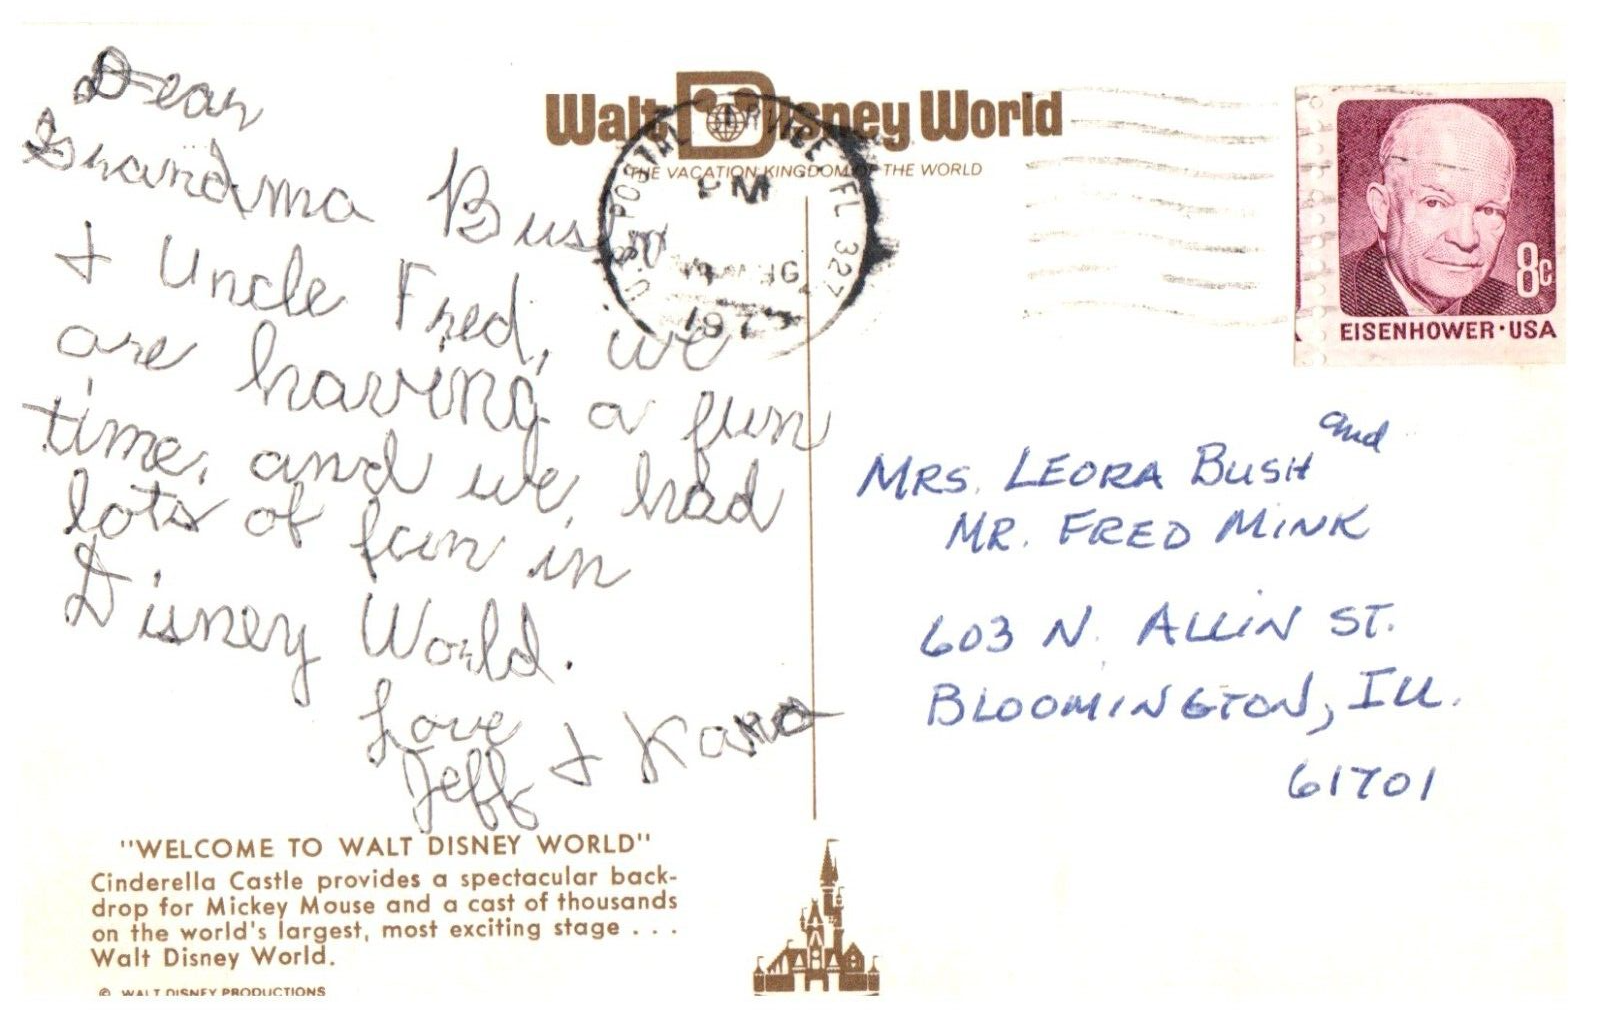 Dear
Grandma Bush
+ Uncle Fred, we
are having a fun
time, and we, had
lots of fun in
Disney World.
Love
Jeff + Kara
"WELCOME TO WALT DISNEY WORLD"
Cinderella Castle provides a spectacular back-
drop for Mickey Mouse and a cast of thousands
on the world's largest, most exciting stage . . .
Walt Disney World.
© WALT DISNEY PRODUCTIONS
Walt Disney World
THE VACATION KINGDOM OF THE WORLD
U.S. POSTAL SERVICE FL 327
PM
197
8c
EISENHOWER·USA
MRS. LEORA BUSH and
MR. FRED MINK
603 N. ALLIN ST.
BLOOMINGTON, ILL.
61701